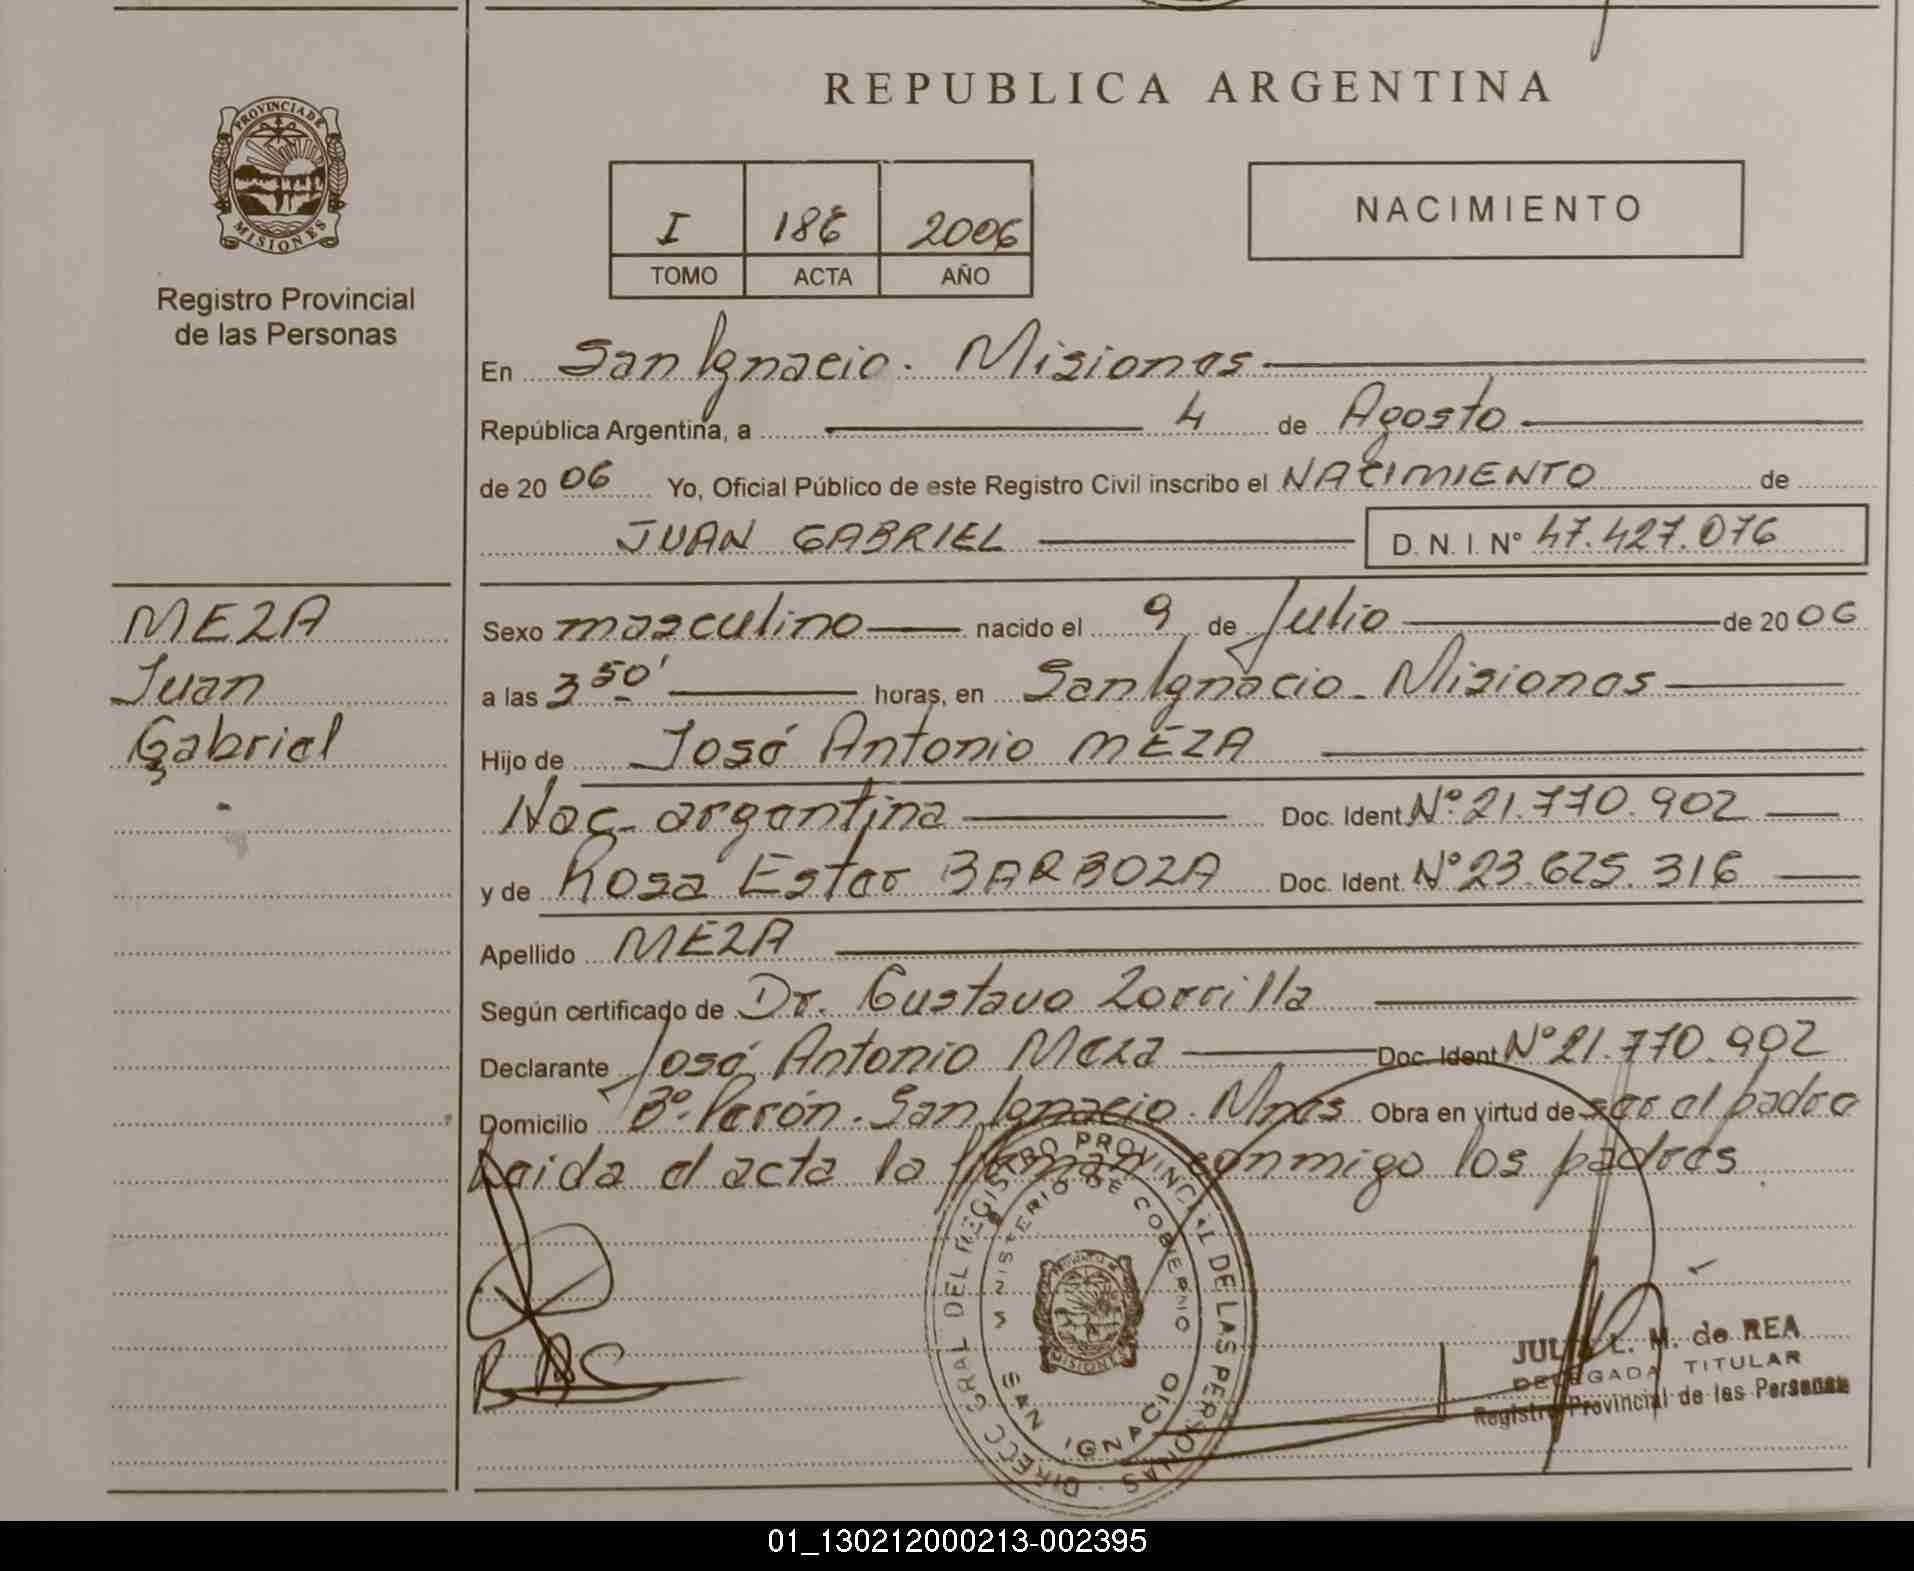 REPUBLICA ARGENTINA
PROVINCIA DE MISIONES
Registro Provincial
de las Personas
I 186 2006
TOMO ACTA AÑO
NACIMIENTO
En San Ignacio. Misiones
República Argentina, a 4 de Agosto
de 2006 Yo, Oficial Público de este Registro Civil inscribo el NACIMIENTO de
JUAN GABRIEL D. N. I. Nº 47.427.076
MEZA
Juan
Gabriel
Sexo masculino nacido el 9 de Julio de 2006
a las 3 50' horas, en San Ignacio - Misiones
Hijo de José Antonio MEZA
Nac. argentina Doc. Ident. Nº 21.770.902
y de Rosa Ester BARBOZA Doc. Ident. Nº 23.625.316
Apellido MEZA
Según certificado de Dr. Gustavo Zorrilla
Declarante José Antonio Meza Doc. Ident. Nº 21.770.902
Domicilio Bº. Perón. San Ignacio. Mnes Obra en virtud de ser el padre
Leida el acta la firman conmigo los padres
DIRECC GRAL DEL REGISTRO PROVINCIAL DE LAS PERSONAS
MINISTERIO DE GOBIERNO
MISIONES
SAN IGNACIO
L. M. de REA
DELEGADA TITULAR
Registro Provincial de las Personas
01_130212000213-002395